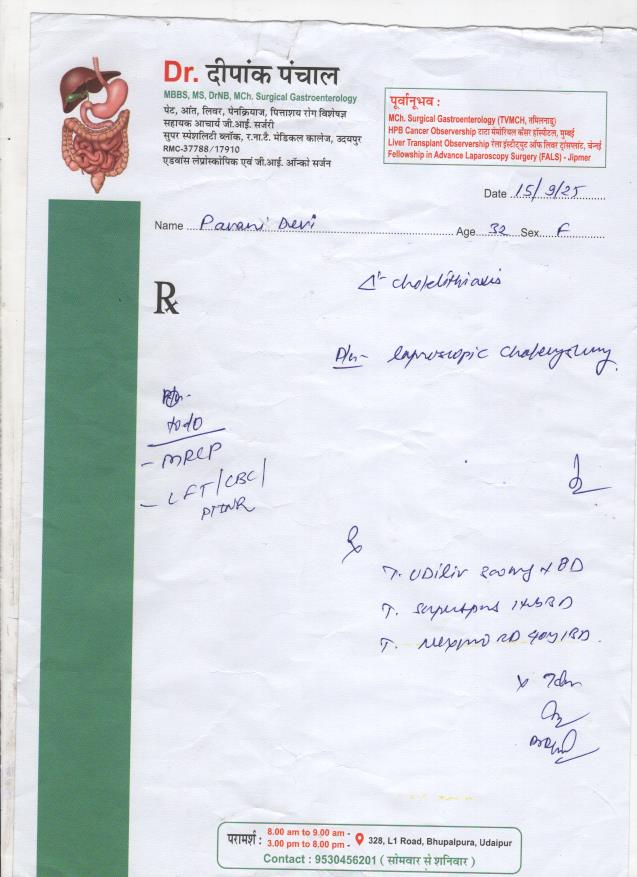 Dr. दीपांक पंचाल
MBBS, MS, DrNB, MCh. Surgical Gastroenterology
पेट, आंत, लिवर, पेनक्रियाज, पित्ताशय रोग विशेषज्ञ
सहायक आचार्य जी.आई. सर्जरी
सुपर स्पेशलिटी ब्लॉक, र.ना.टै. मेडिकल कालेज, उदयपुर
RMC-37788/17910
एडवांस लेप्रोस्कोपिक एवं जी.आई. ऑन्को सर्जन
पूर्वानूभव :
MCh. Surgical Gastroenterology (TVMCH, तमिलनाडु)
HPB Cancer Observership टाटा मेमोरियल कैंसर हॉस्पीटल, मुम्बई
Liver Transplant Observership रेला इंस्टीट्युट ऑफ लिवर ट्रांसप्लांट, चेन्नई
Fellowship in Advance Laparoscopy Surgery (FALS) - Jipmer
Date 15/9/25
Name Pavani Devi Age 32 Sex F
Rx
Δ-
laproscopic
todo
- MRCP
- LFT/CBC/
PTINR
T. UDiliv 300mg × BD
T.
T. RD 40mg 1BD
× 7
परामर्श : 8.00 am to 9.00 am -
3.00 pm to 8.00 pm -
328, L1 Road, Bhupalpura, Udaipur
Contact : 9530456201 ( सोमवार से शनिवार )